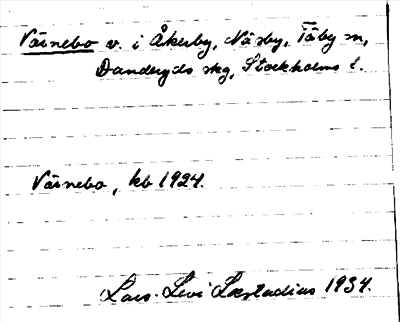 Värnebo v. i Åkerby, Näsby, Täby sn,
Danderyds skg, Stockholms l.
Värnebo, kb 1924.
Lars-Levi Læstadius 1934.